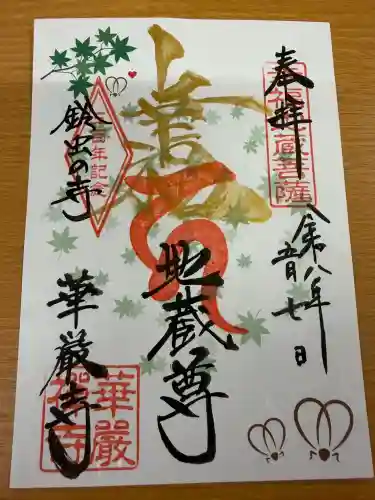 奉拝
令和八年
五月七日
地蔵尊
鈴虫の寺
華厳寺
百年記念
華嚴
禅寺
地蔵菩薩